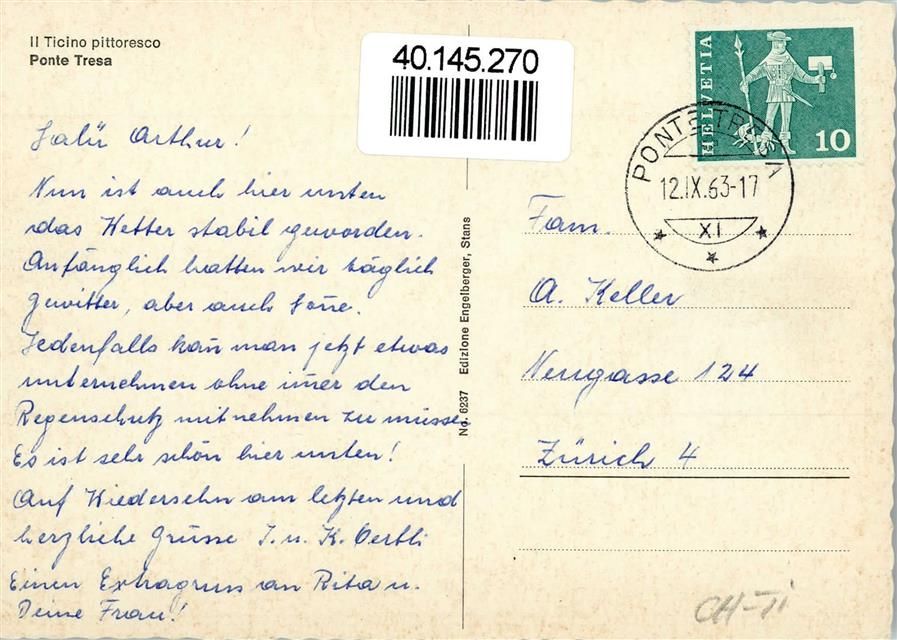 Il Ticino pittoresco
Ponte Tresa
40.145.270
Salü Arthur!
Nun ist auch hier unten
das Wetter stabil geworden.
Anfänglich hatten wir täglich
Gewitter, aber auch Soñe.
Jedenfalls kañ man jetzt etwas
unternehmen ohne im̄er den
Regenschutz mitnehmen zu müssen.
Es ist sehr schön hier unten!
Auf Wiedersehn am letzten und
herzliche Grüsse J. u. K. Oertli
Einen Extragruss an Rita u.
Deine Frau!
No. 6237 Edizione Engelberger, Stans
HELVETIA
10
PONTE TRESA
12.IX.63-17
XI
Fam.
A. Keller
Neugasse 124
Zürich 4
CH-TI